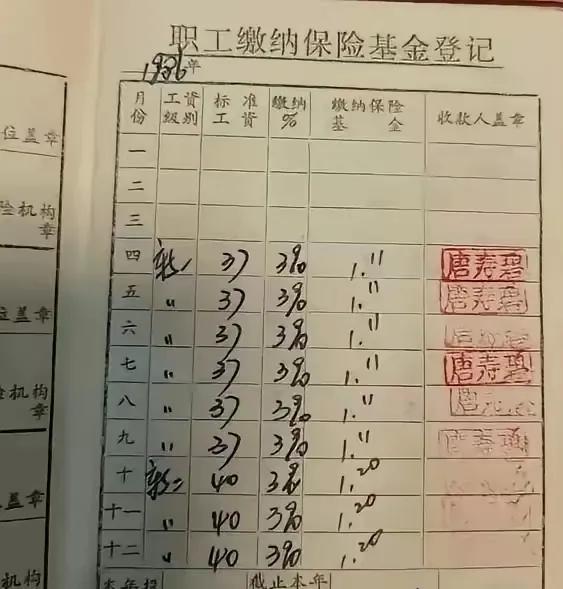 职工缴纳保险基金登记
1986年
月份 工资级别 标准工资 缴纳% 缴纳保险基金 收款人盖章
一
二
三
四 新一 37 3% 1.11 唐寿碧
五 〃 37 3% 1.11 唐寿碧
六 〃 37 3% 1.11
七 〃 37 3% 1.11 唐寿碧
八 〃 37 3% 1.11
九 〃 37 3% 1.11 唐寿碧
十 新二 40 3% 1.20
十一 〃 40 3% 1.20
十二 〃 40 3% 1.20
截止本年
位盖章
险机构
章
位盖章
险机构
章
盖章
机构